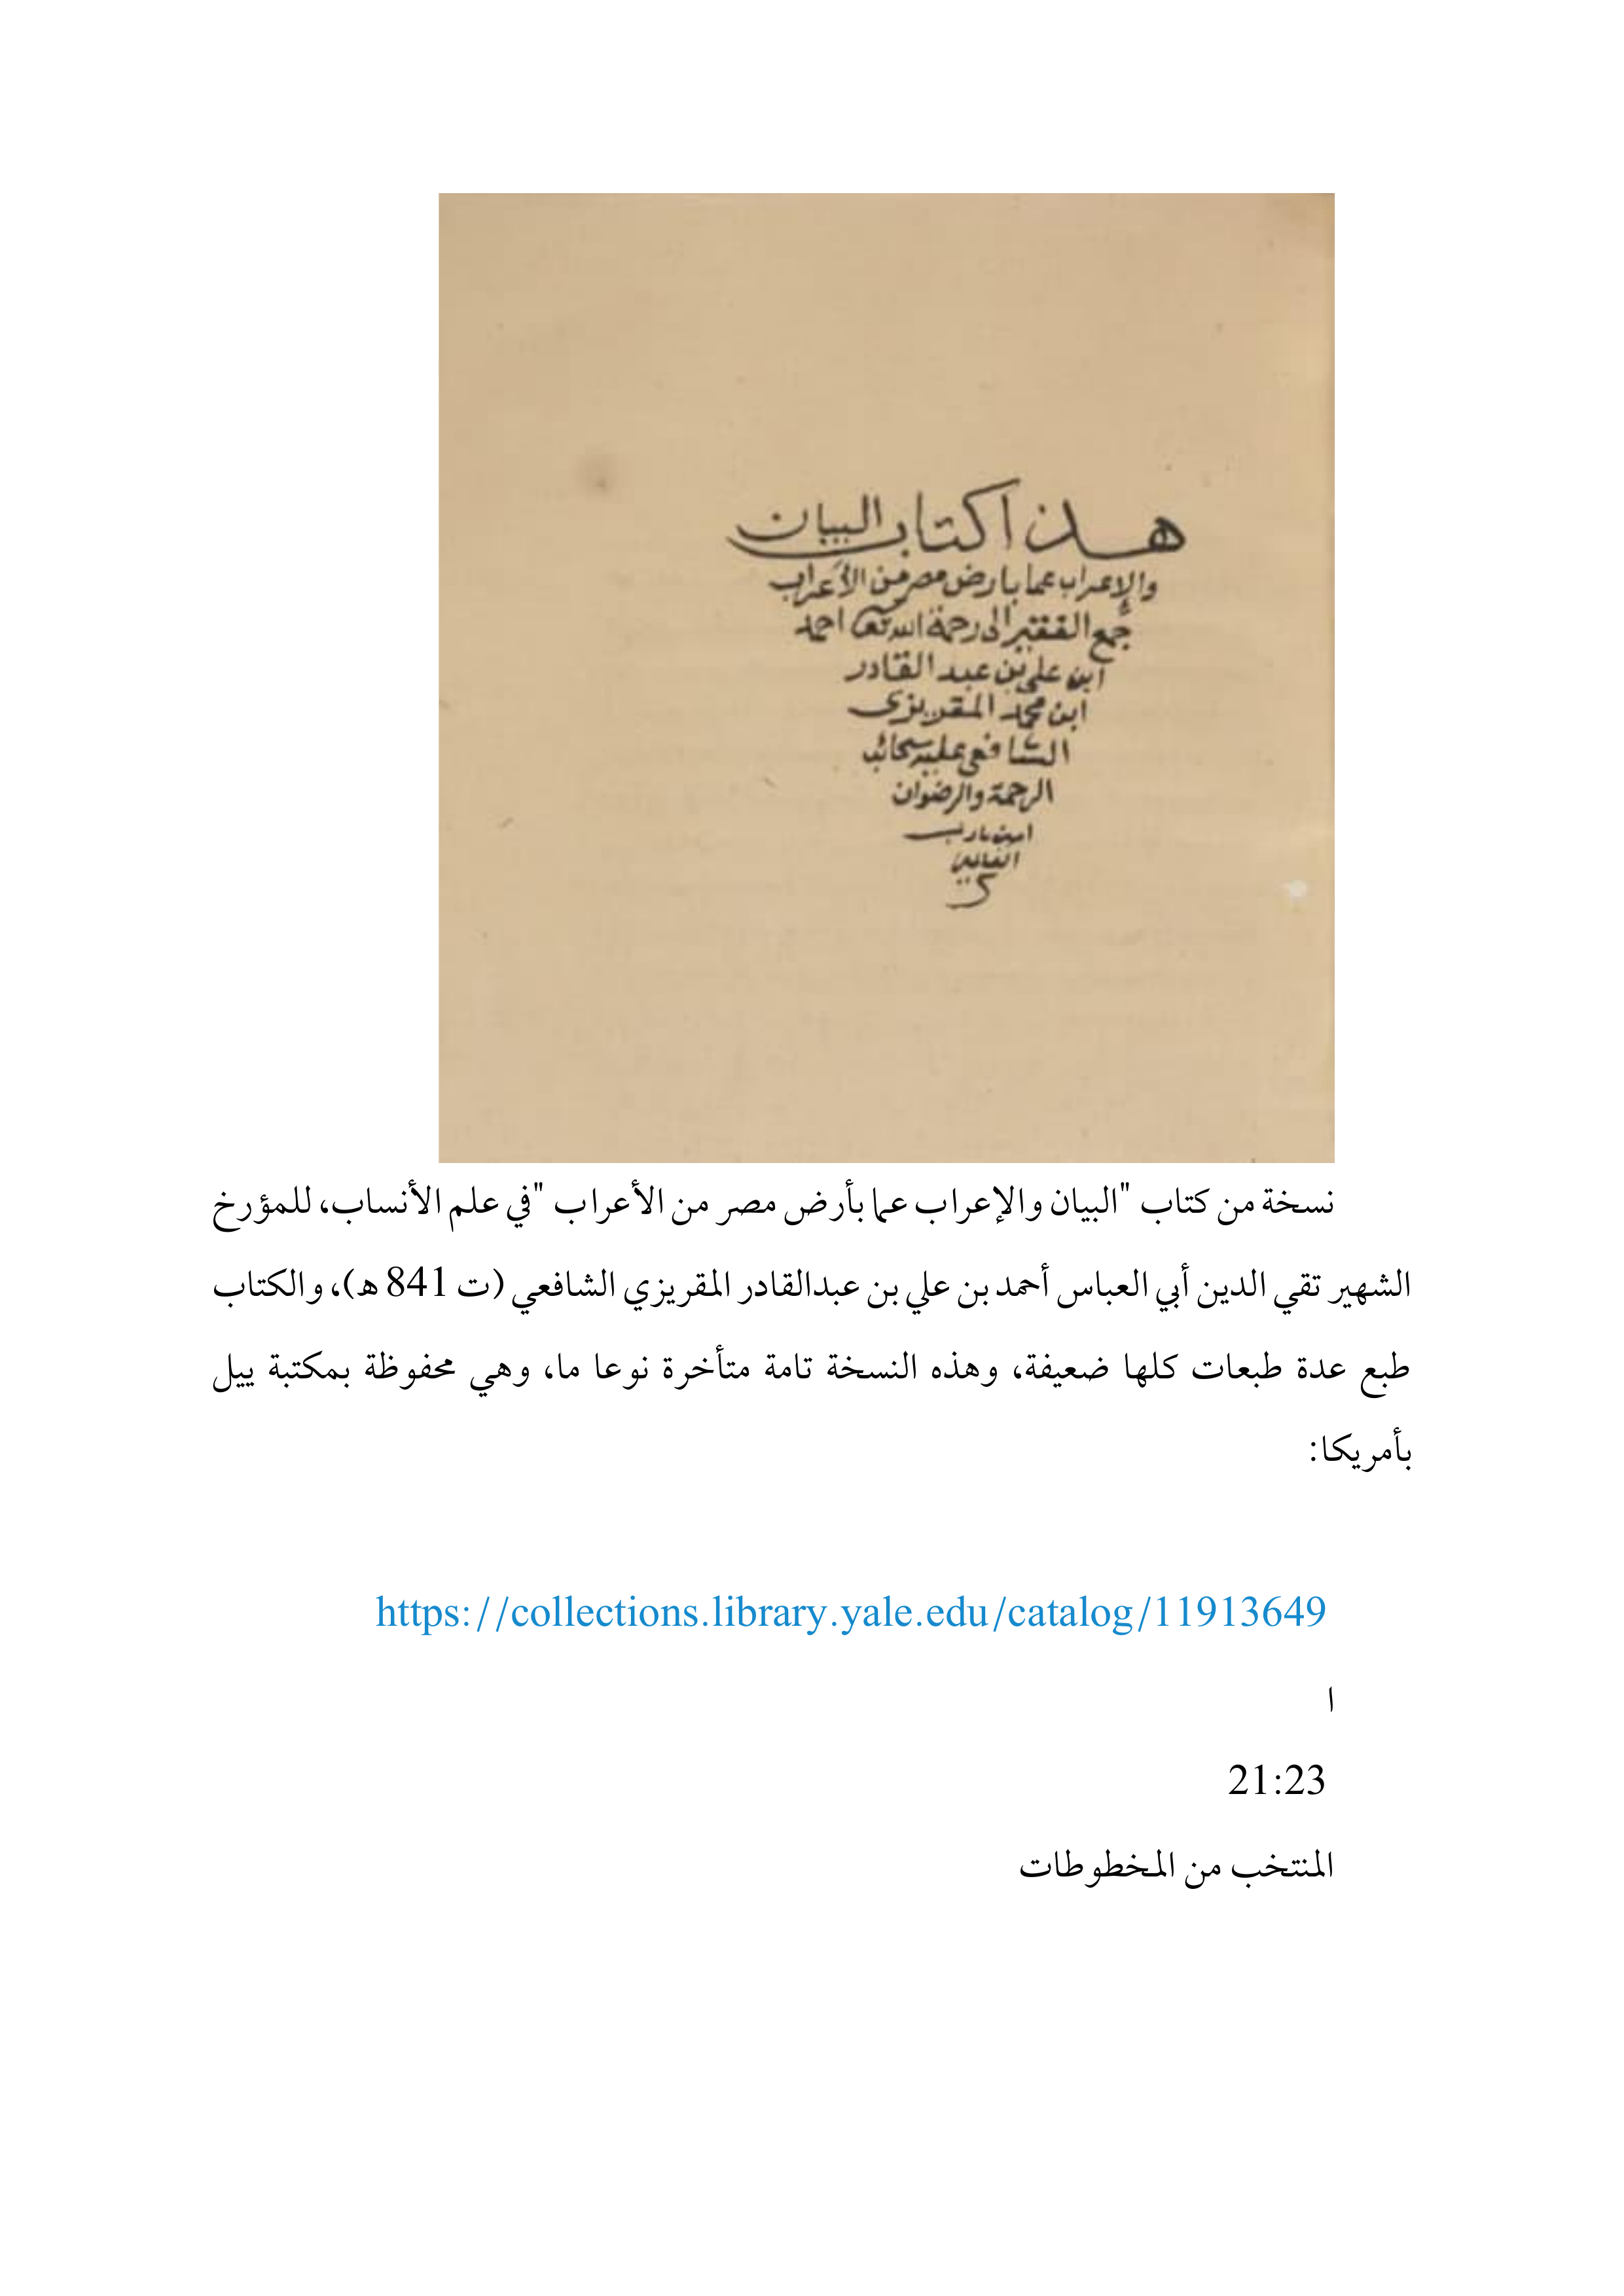 هذا كتاب البيان
والإعراب عما بارض مصر من الأعراب
جمع الفقير الى رحمة الله تعالى احمد
ابن علي بن عبد القادر
ابن محمد المقريزى
الشافعي عليه سحائب
الرحمة والرضوان
امين يارب
العالمين
نسخة من كتاب "البيان والإعراب عما بأرض مصر من الأعراب "في علم الأنساب، للمؤرخ
الشهير تقي الدين أبي العباس أحمد بن علي بن عبدالقادر المقريزي الشافعي (ت 841 ه)، والكتاب
طبع عدة طبعات كلها ضعيفة، وهذه النسخة تامة متأخرة نوعا ما، وهي محفوظة بمكتبة ييل
بأمريكا:
https://collections.library.yale.edu/catalog/11913649
ا
21:23
المنتخب من المخطوطات